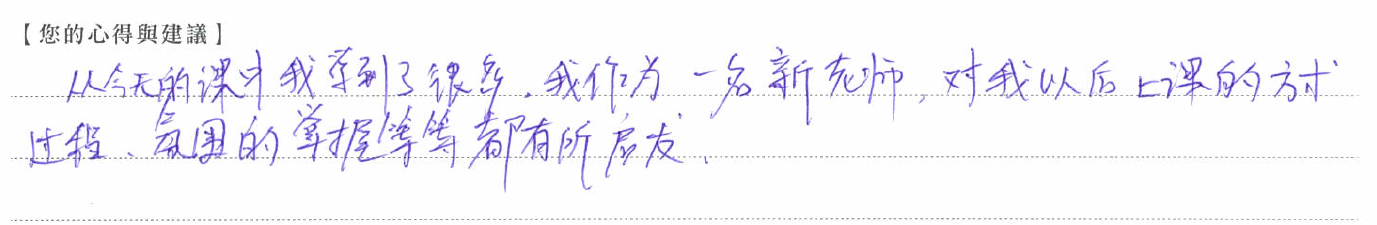 【您的心得與建議】
从今天的课中我学到了很多，我作为一名新老师，对我以后上课的方式
过程、氛围的掌握等等都有所启发。